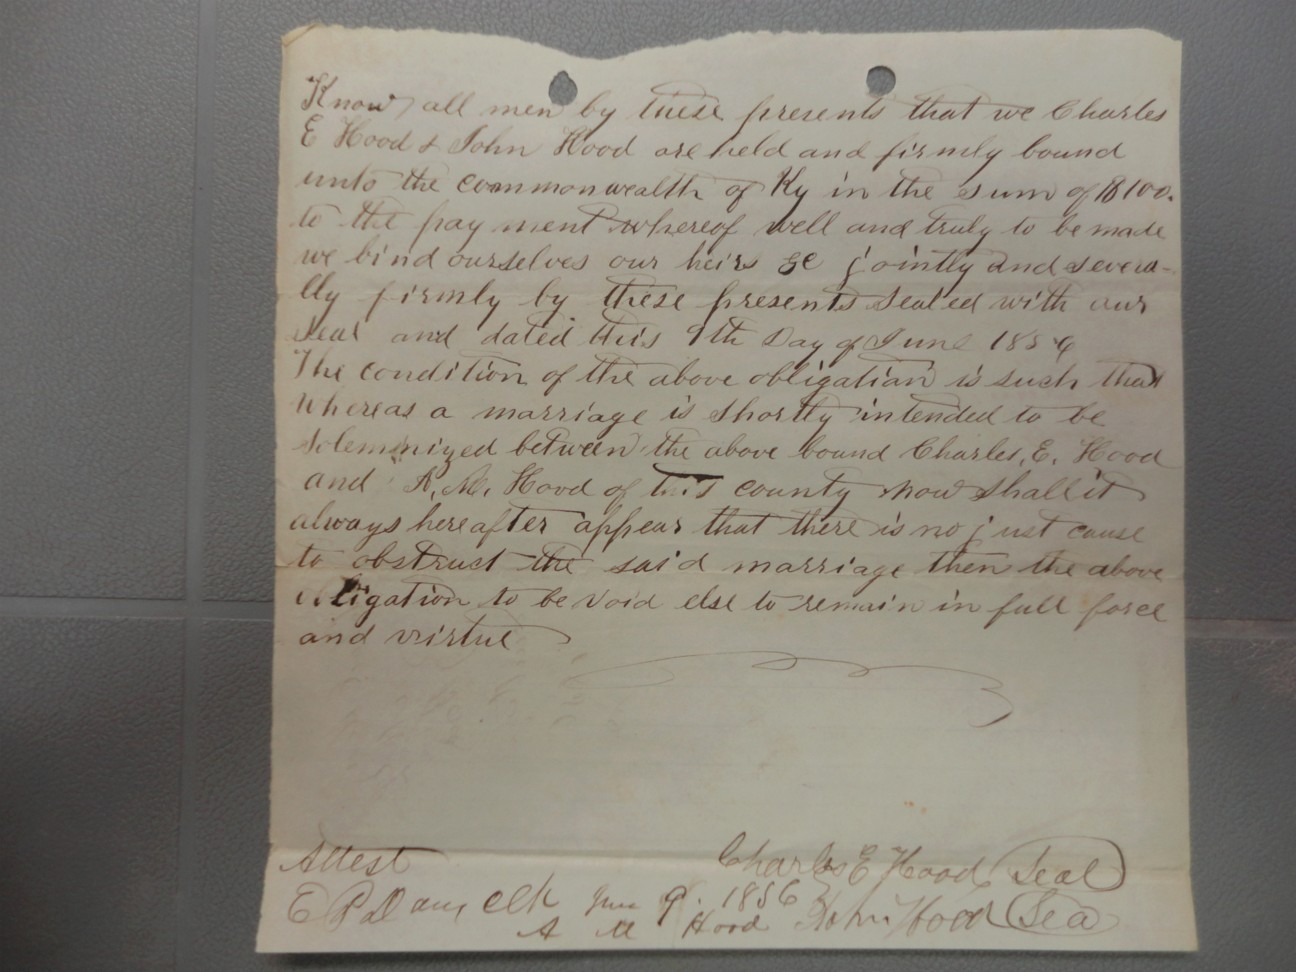 Know all men by these presents that we Charles
E Hood & John Hood are held and firmly bound
unto the commonwealth of Ky in the sum of $100.
to the pay ment whereof well and truly to be made
we bind ourselves our heirs &c jointly and severa-
lly firmly by these presents sealed with our
seal and dated this 9th Day of June 1856
The condition of the above obligation is such that
Whereas a marriage is shortly intended to be
solemnized between the above bound Charles, E. Hood
and A. M. Hood of this county now shall it
always hereafter appear that there is no just cause
to obstruct the said marriage then the above
obligation to be void else to remain in full force
and virtue
Attest Charles E Hood Seal
E clk June 9. 1856 John Hood Sea
A M Hood